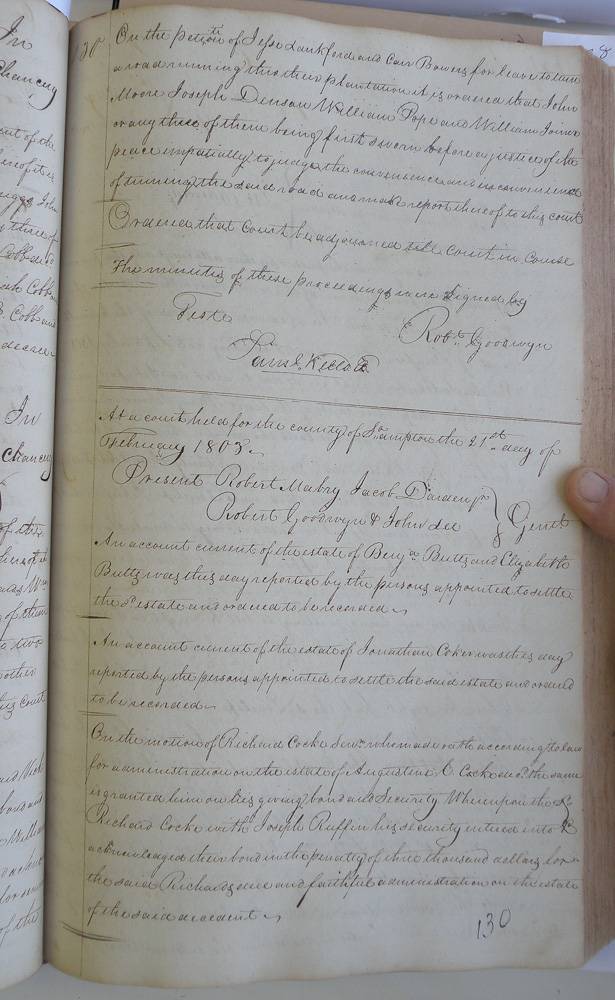 130
On the petitn of Jesse Lankford and Cair Bowers for leave to turn
a road running thro their plantation it is ordered that John
Moore Joseph Denson William Pope and William Joiner
or any three of them being first sworn before a justice of the
peace impatially to judge the convenience and inconvenience
of turning the said road and make report thereof to this court
Ordered that Court be adjourned till Court in Course
The minutes of these proceedings were Signed by
Teste
Robt. Goodwyn
Saml. Kello
At a court held for the county of So.ampton the 21st day of
February 1803
Present Robert Mabry Jacob Darden jr
Robert Goodwyn & John Lee } Gent.
An account current of the estate of Benja. Butts and Elizabeth
Butts was this day reported by the persons appointed to settle
the sd. estate and ordered to be recorded
An account current of the estate of Jonathan Coker was this day
reported by the persons appointed to settle the said estate and ordered
to be recorded
On the motion of Richard Cocke Senr. who made oath according to law
for administration on the estate of Augustine C. Cocke decd. the same
is granted him on his giving bond and Security Whereupon the sd.
Richard Cocke with Joseph Ruffin his security entered into &
acknowledged their bond in the penalty of three thousand dollars for
the said Richards due and faithful administration on the estate
of the said decedent
130
In
Chancery
In
Chancery